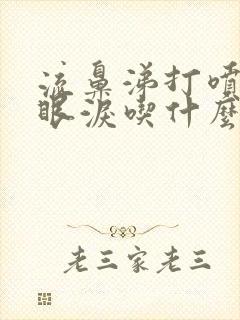 流鼻涕打噴
眼淚喫什麼
老三家老三